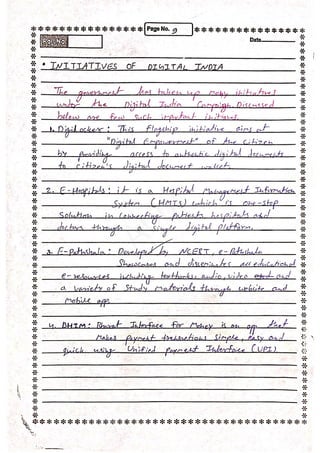 Page No. 9
ROUND
Date
• INITIATIVES OF DIGITAL INDIA
The government has taken up many initiatives
under the Digital India Campaign. Discussed
below are few such important initiatives.
1. Digilocker: This flagship initiative aims at
"Digital Empowerment" of the citizen
by providing access to authentic digital documents
to citizen's digital document wallet.
2. E-Hospitals: it is a Hospital Management Information
System (HMIS) which is one-stop
Solution in connecting patients, hospitals and
doctors through a single digital platform.
3. E-Pathshala: Developed by NCERT, e-Pathshala
Showcases and disseminates all educational
e-resources including textbooks, audio, video and
a variety of study materials through website and
mobile app.
4. BHIM: Bharat Interface for Money is an app that
makes payment transactions simple, easy and
quick using Unified Payment Interface (UPI).